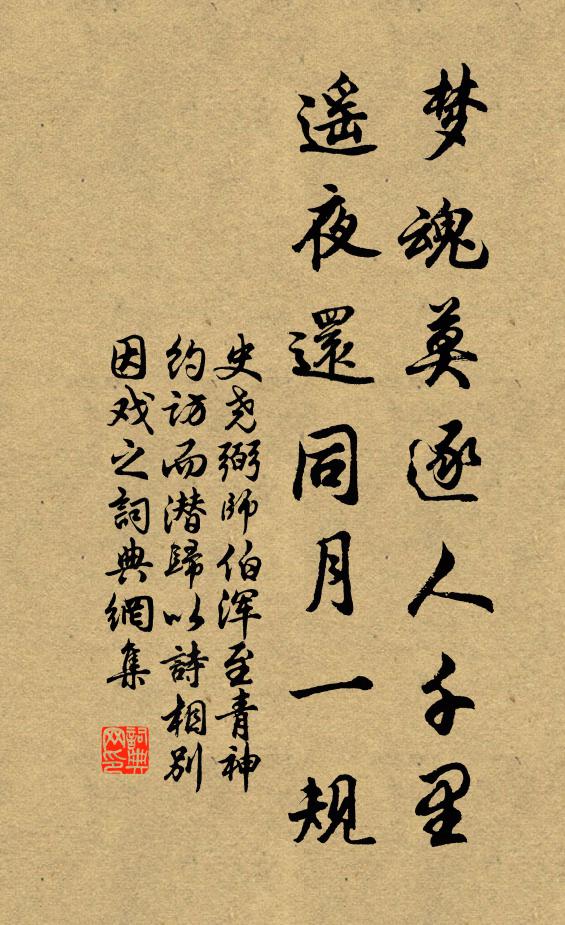 梦魂莫逐人千里
遥夜還同月一規
史尧弼師伯浑至青神
约访而潜歸以詩相别
因戏之詞典網集
詞典网印